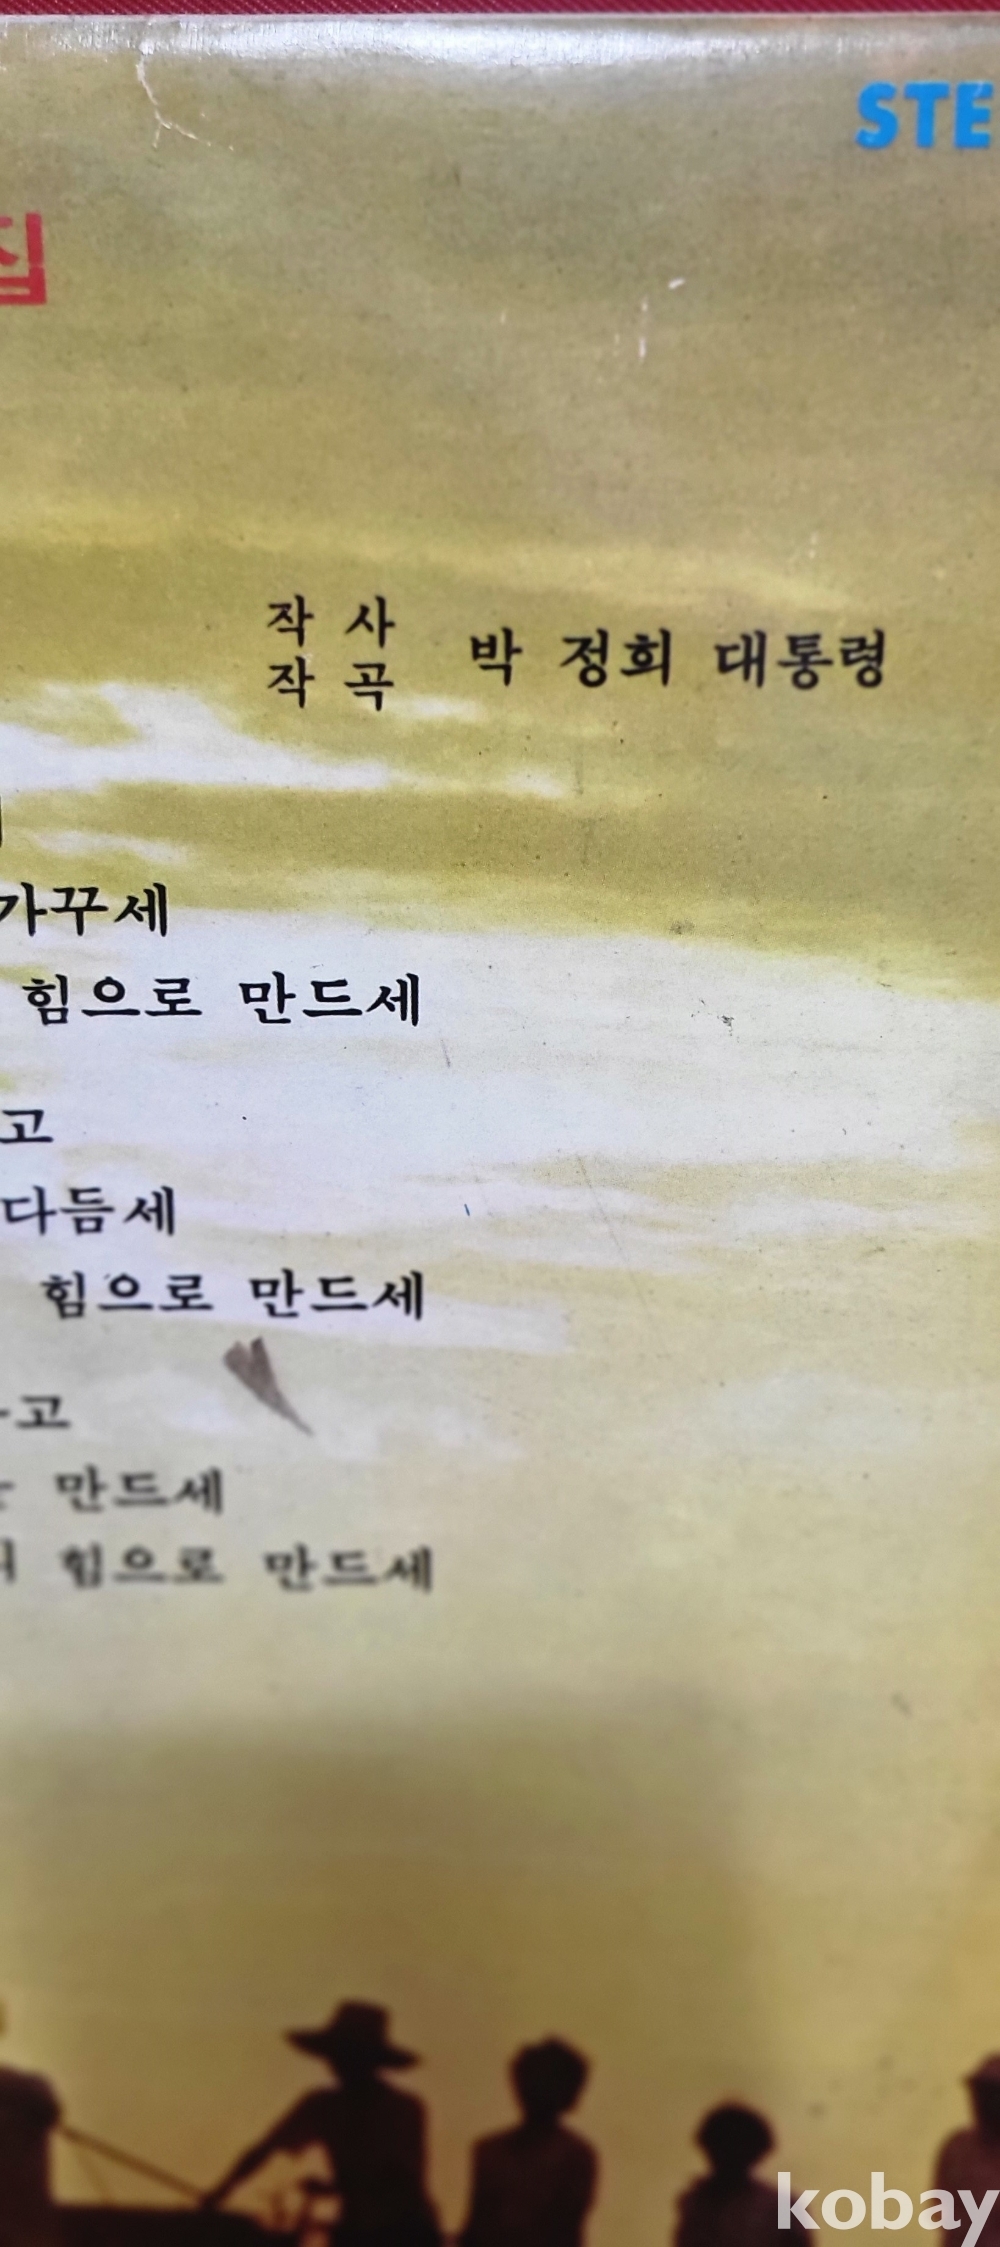 STE
집
작 사
작 곡
박 정희 대통령
가꾸세
힘으로 만드세
고
다듬세
힘으로 만드세
고
만드세
힘으로 만드세
kobay